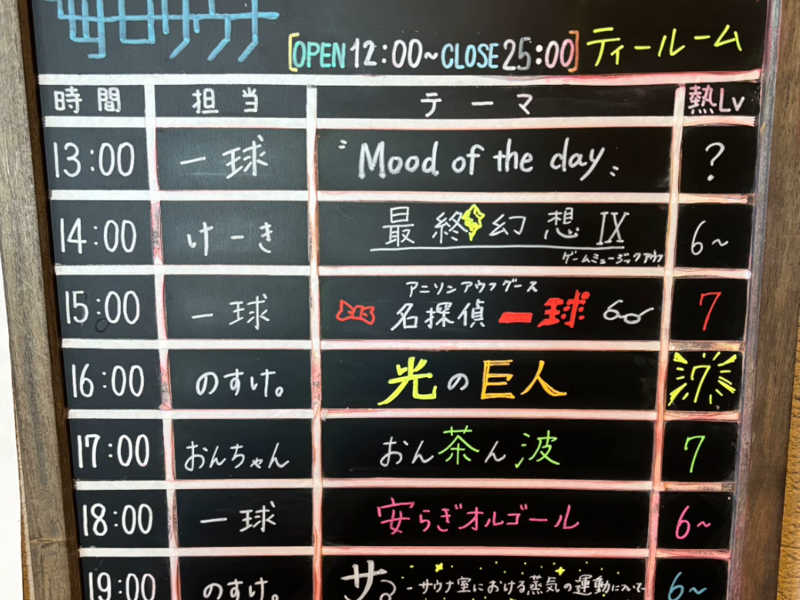 毎日サウナ
[OPEN 12:00~CLOSE 25:00] ティールーム
時間 担当 テーマ 熱Lv
13:00 一球 〝Mood of the day〟 ?
14:00 けーき 最終幻想 IX 6~
ゲームミュージックアウフ
15:00 一球 アニソンアウフグース 7
名探偵 一球
16:00 のすけ。 光の巨人 7
17:00 おんちゃん おん茶ん波 7
18:00 一球 安らぎオルゴール 6~
19:00 のすけ。 サ。-サウナ室における蒸気の運動について- 6~